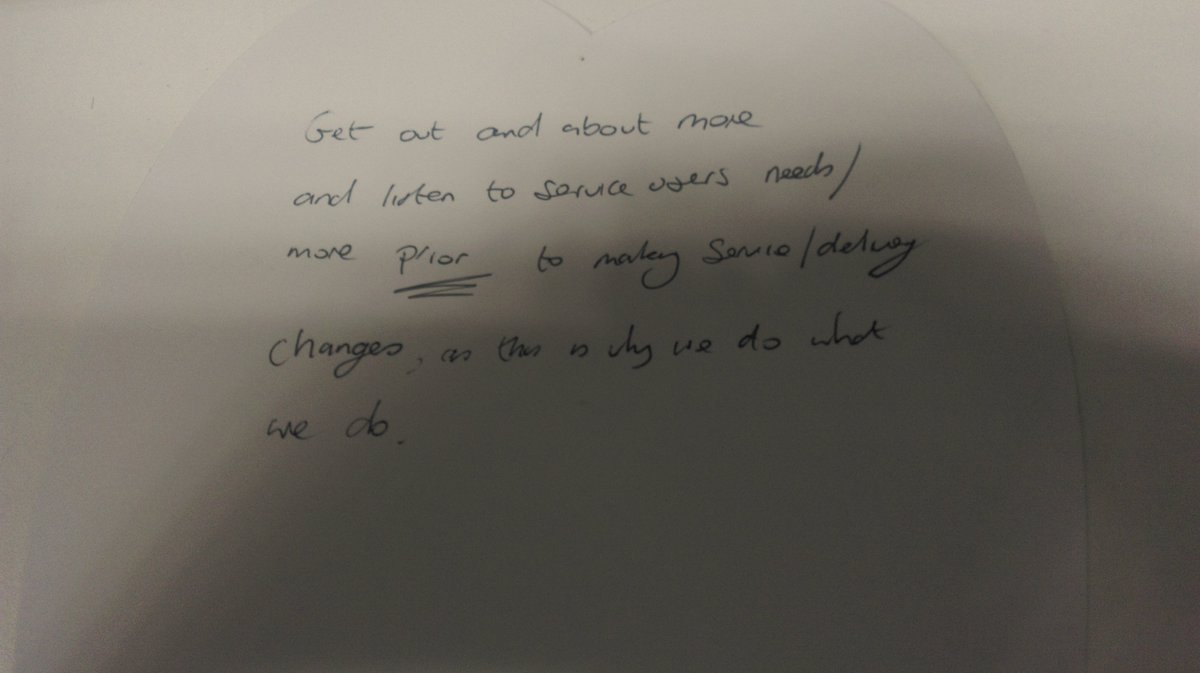 Get out and about more
and listen to service users needs/
more prior to making service/delivery
changes, as this is why we do what
we do.